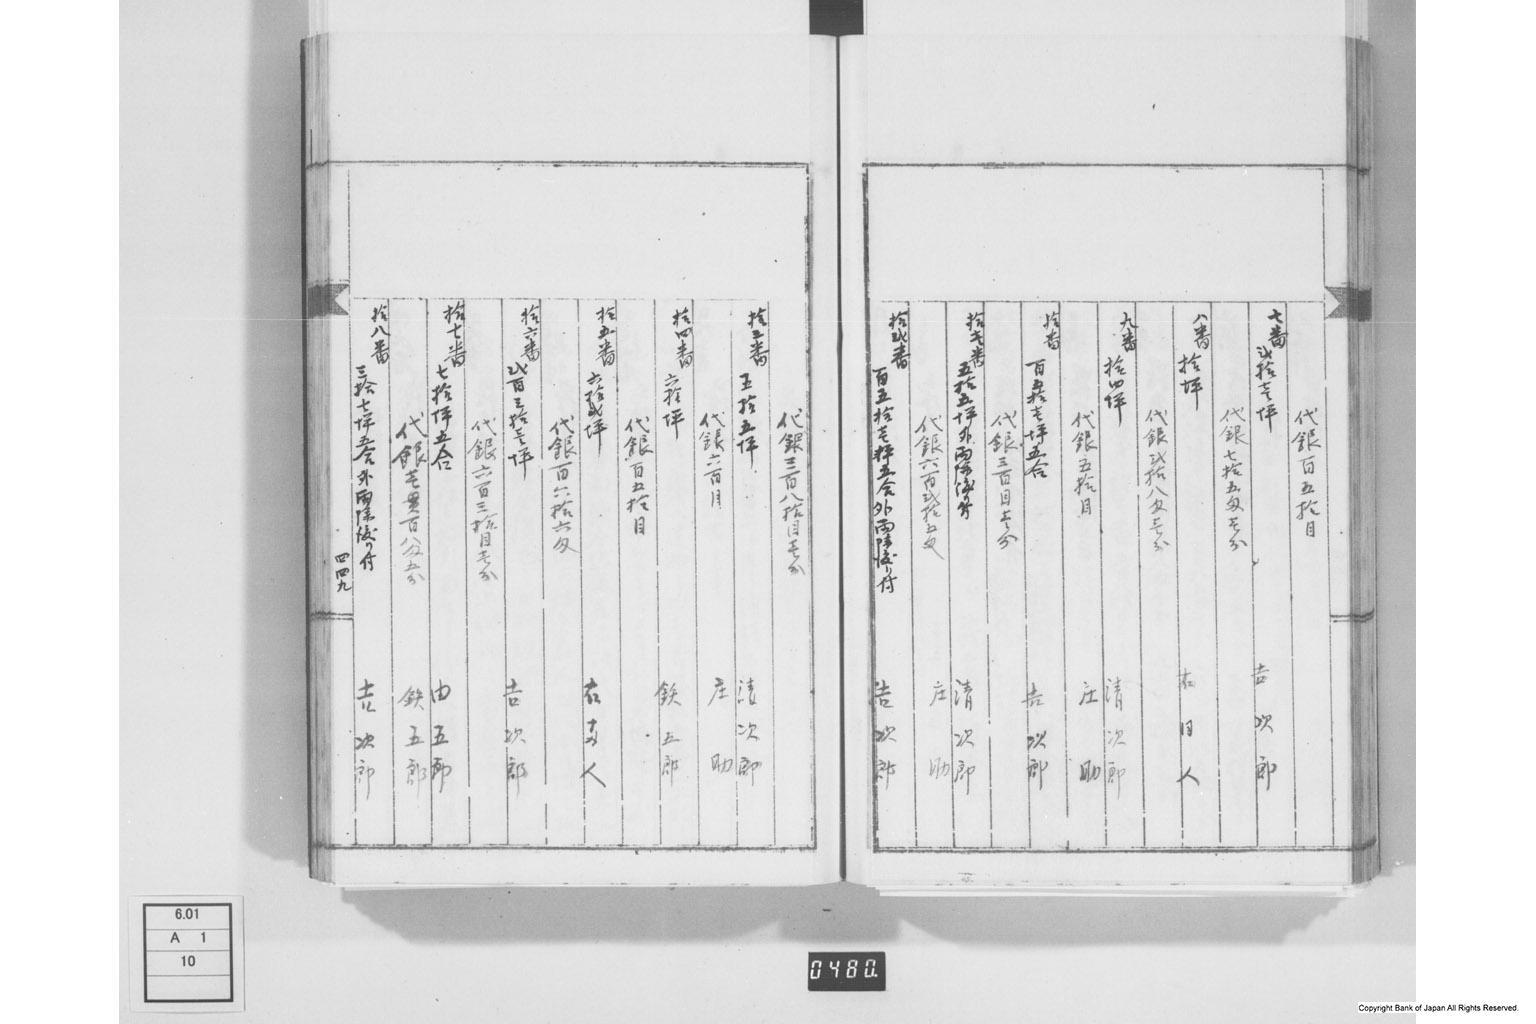 代銀百五拾目
七番 弐拾壱坪 吉次郎
代銀七拾五匁壱分
八番 拾坪 右同人
代銀弐拾八匁壱分
九番 拾四坪 清次郎
代銀五拾目 庄助
拾番 百五拾壱坪五合 吉次郎
代銀三百目壱分
拾壱番 五拾五坪外雨除後り付 清次郎
代銀六百弐拾五匁 庄助
拾弐番 百五拾壱坪五合外雨除後り付 吉次郎
代銀三百八拾目壱分
拾三番 五拾五坪 清次郎
代銀六百目 庄助
拾四番 六拾坪 鉄五郎
代銀百五拾目
拾五番 六拾弐坪 右同人
代銀百六拾六匁
拾六番 弐百三拾壱坪 吉次郎
代銀六百三拾目壱分
拾七番 七拾坪五合 由五郎
代銀壱貫百八匁五分 鉄五郎
拾八番 三拾七坪五合外雨除後り付 吉次郎
四四九
6.01
A 1
10
0480.
Copyright Bank of Japan All Rights Reserved.